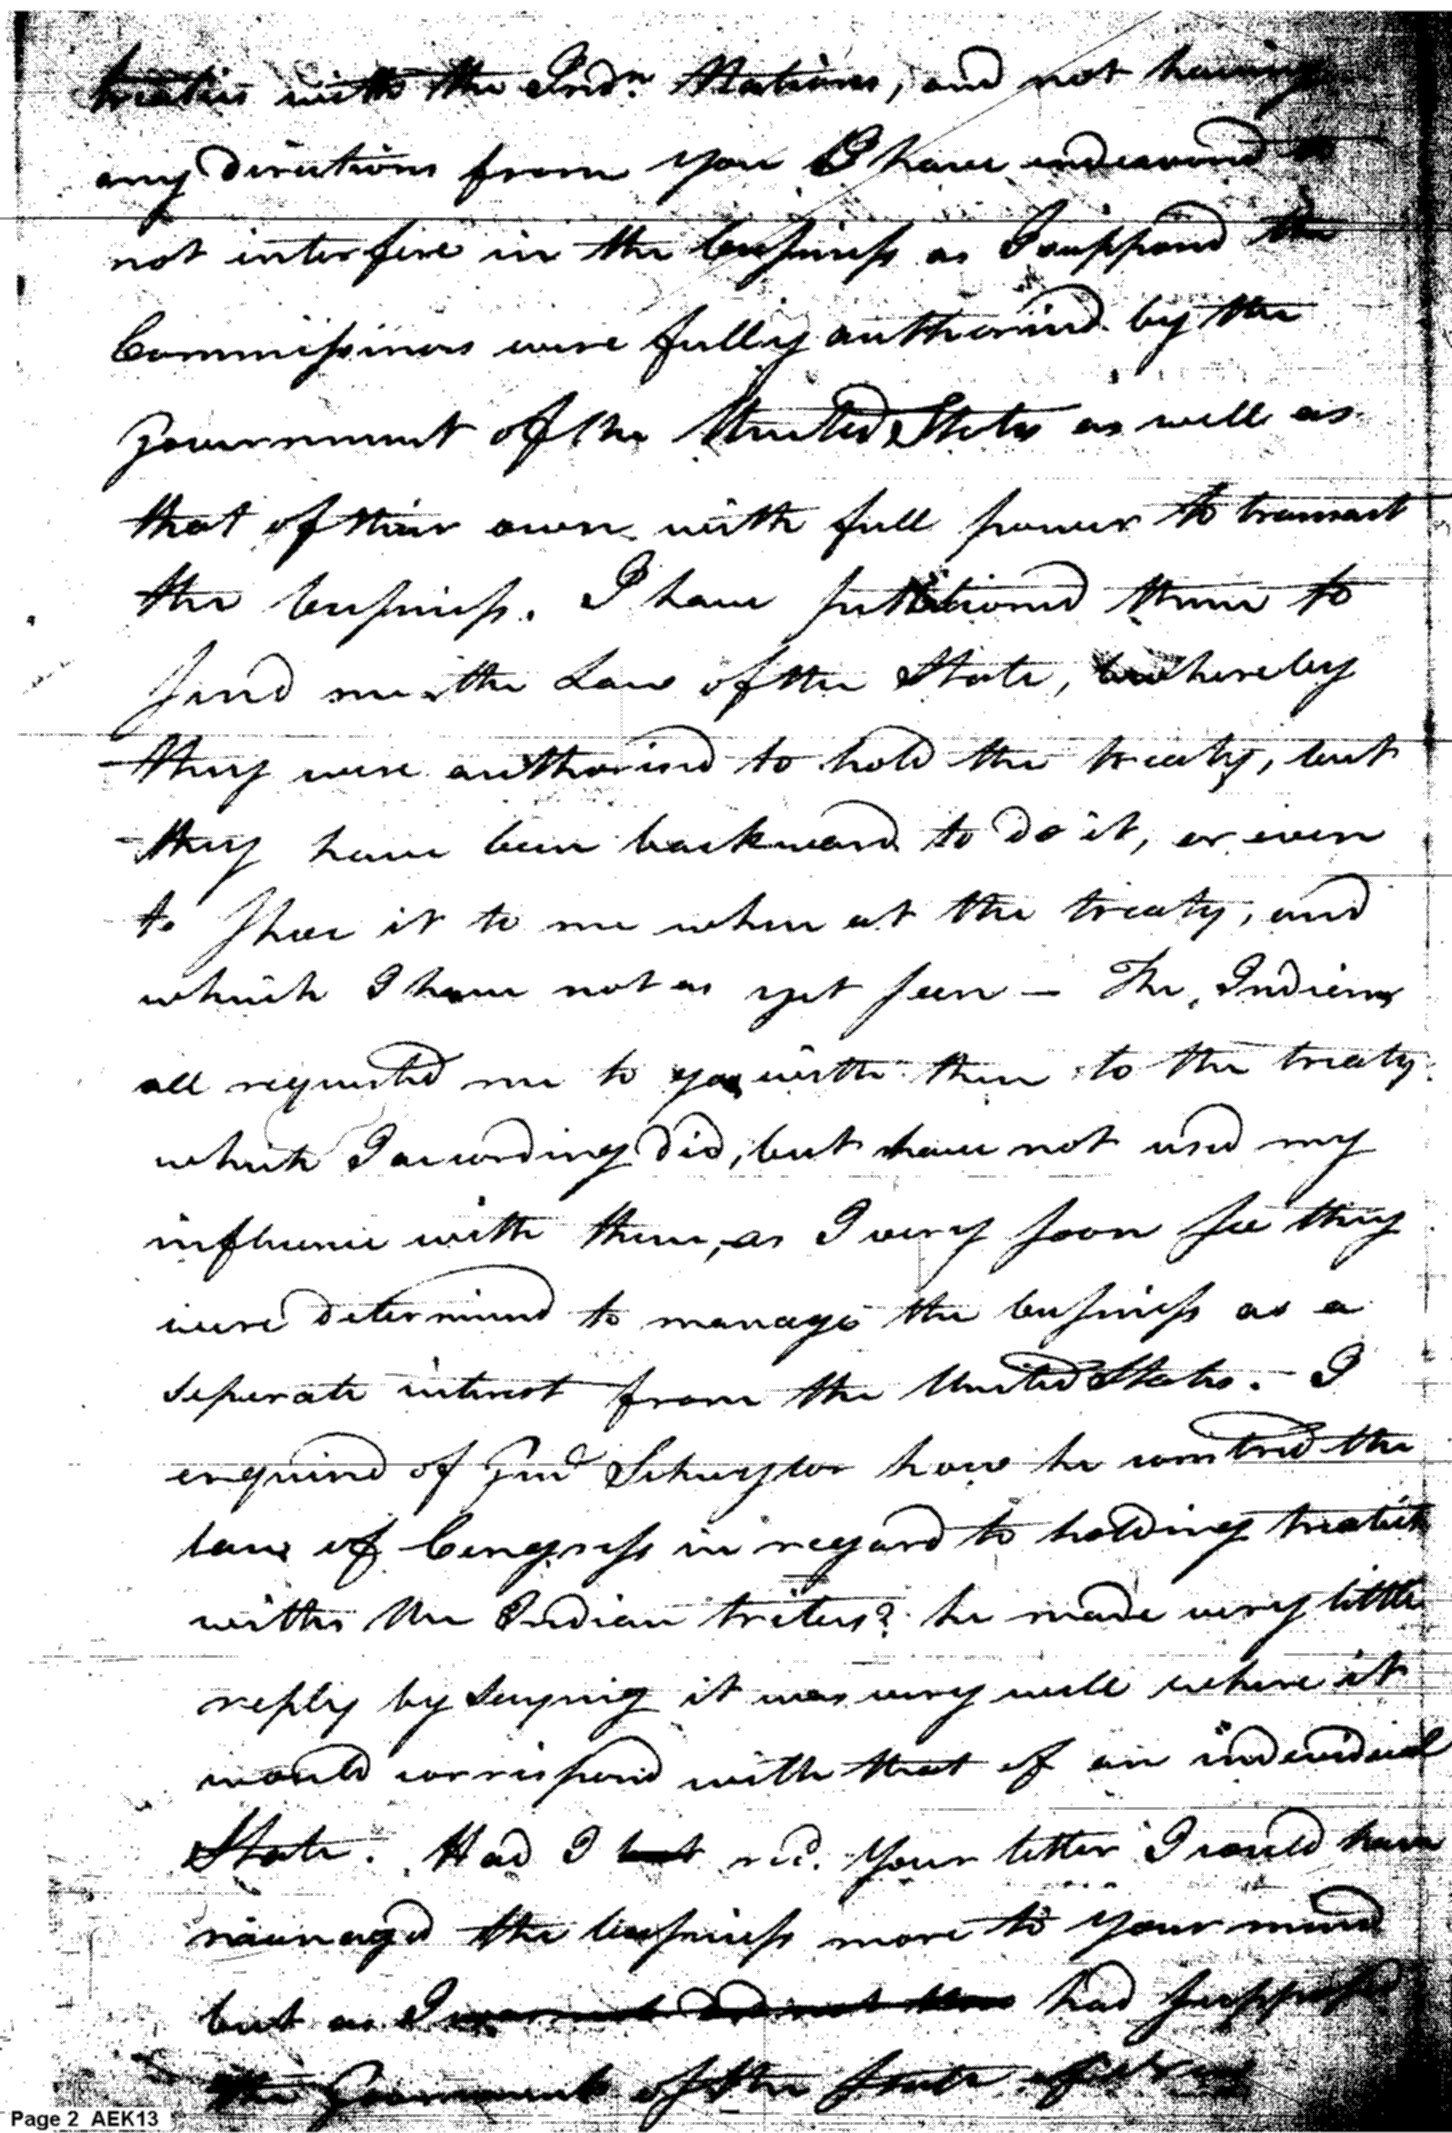 treaties with the Indn. Nations, and not having
any Directions from you I have endeavourd to
not interfere in the business as I supposd the
Commissinors were fully authorised by the
Government of the United States as well as
that of their own with full power to transact
the business. I have petitioned them to
send me the Law of the State, whereby
they were authorised to hold the treaty, but
they have been backward to do it, or even
to shoe it to me when at the treaty, and
which I have not as yet seen — The Indiens
all requested me to go with them to the treaty
which I according did, but have not used my
influence with them, as I very soon see they
were determind to manage the business as a
seperate interest from the United States. — I
enquired of Genl Schuyler how he construd the
law of Congress in regard to holding treaties
with the Indian tribes? he made very little
reply by saying it was very well where it
would correspond with that of an individual
State. Had I but recd. your letter I could have
mannaged the business more to your mind
but as I had supposed
the Government of the state
Page 2 AEK13